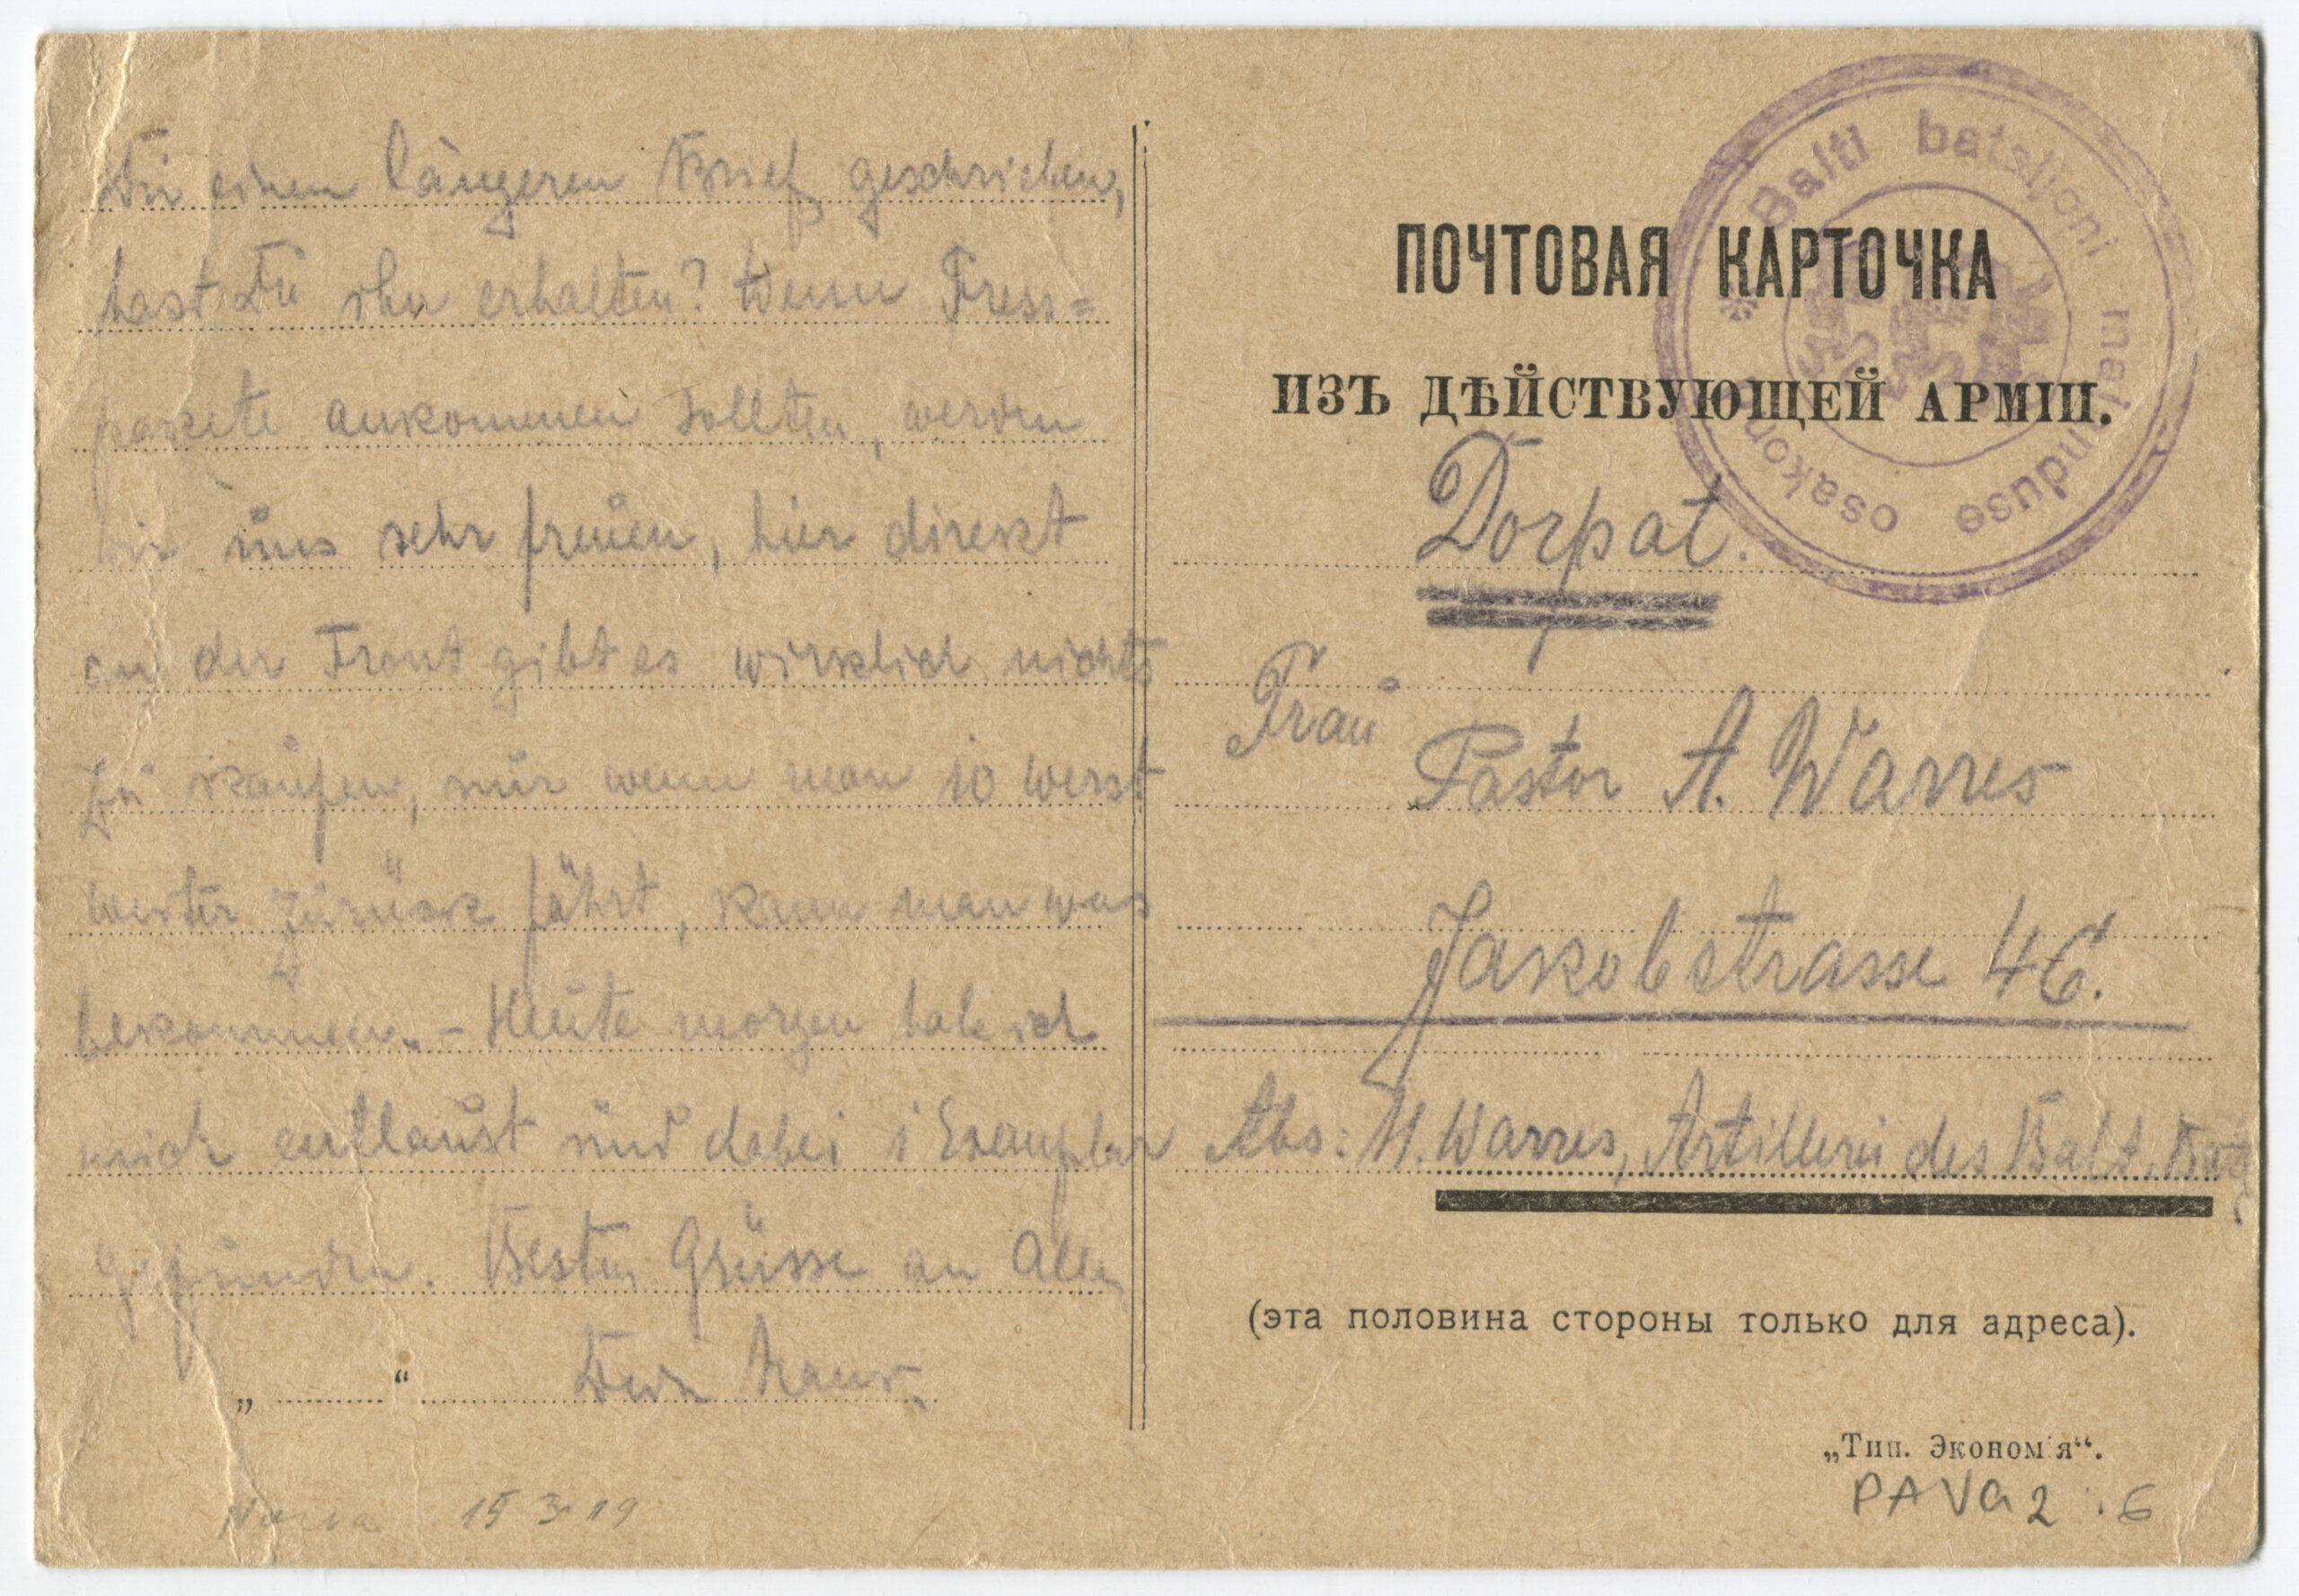 Dir einen längeren Brief geschrieben,
hast Du ihn erhalten? Wenn Fress=
pakete ankommen sollten, werden
wir uns sehr freuen, hier direkt
an der Front gibt es wirklich nichts
zu kaufen, nur wenn man 10 Werst
weiter zurück fährt, kann man was
bekommen. - Heute morgen habe ich
mich entlaust und dabei 1 Exemplar
gefunden. Besten Grüsse an Alle
Dein
„ “
15 3 19
ПОЧТОВАЯ КАРТОЧКА
ИЗЪ ДѢЙСТВУЮЩЕЙ АРМІИ.
Balti bataljoni majanduse osakond
Dorpat.
Frau
Pastor A. Warres
Jakobstrasse 46.
Abs: H. Warres, Artillerie des Balt. Bat.
(эта половина стороны только для адреса).
„Тип. Экономія“.
PAVa 2 : 6